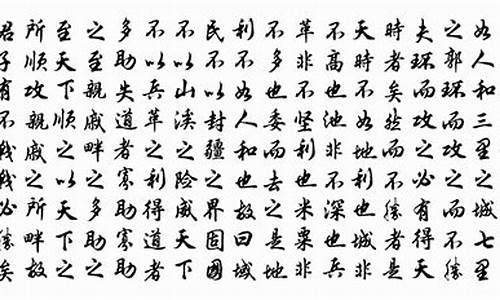 如人和三里之城七里
之郭環而攻之而不勝
夫環而攻之必有得天
時者矣然而不勝者是
天時不如地利也城非
不高也池非不深也兵
革非不堅利也米粟非
不多也委而去之是地
利不如人和也故曰域
民不以封疆之界固國
不以山溪之險威天下
不以兵革之利得道者
多助失道者寡助寡助
之至親戚畔之多助之
至天下順之以天下之
所順攻親戚之所畔故
君子有不戰戰必勝矣